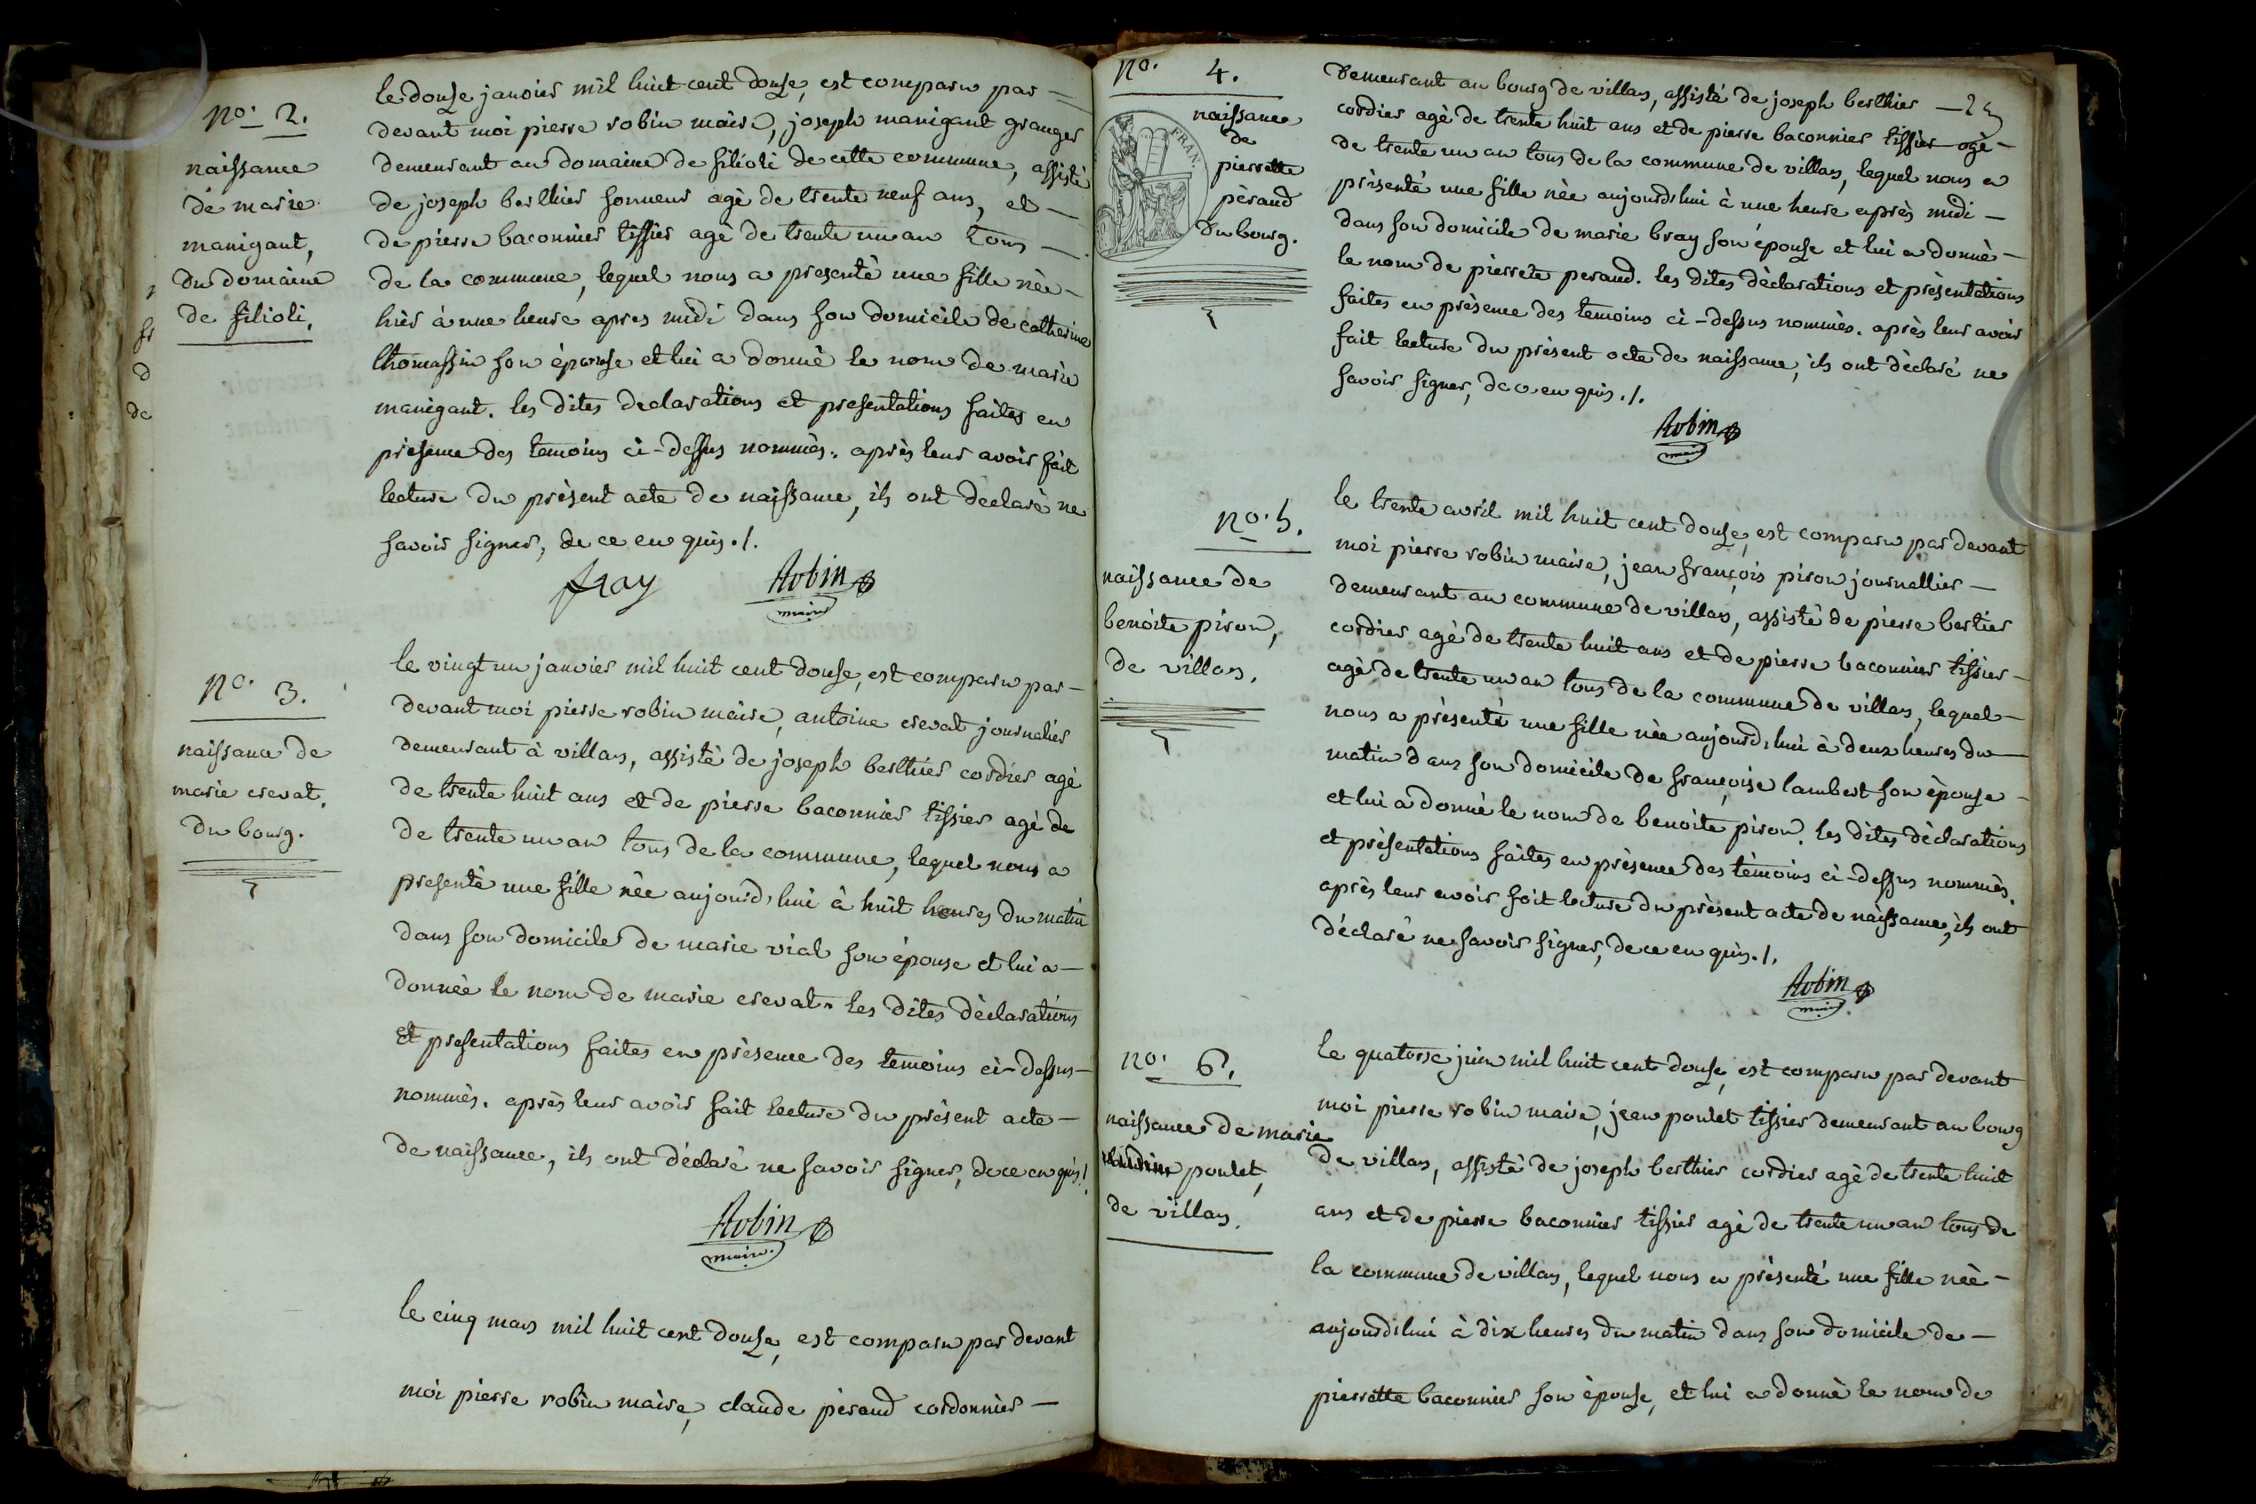 no. 2.
naissance
de marie
manigant,
du domaine
de filioli.
le douse janvier mil huit cent douse, est comparu par
devant moi pierre robin maire, joseph manigant granger
demeurant au domaine de filioli de cette commune, assisté
de joseph berthier sonneur agè de trente neuf ans, et
de pierre baconnier tissier agè de trente un an tous
de la commune, lequel nous a presentè une fille née
hier à une heure apres midi dans son domicile de catherine
thomassin son épouse et lui a donnè le nom de marie
manigant. les dites declarations et presentations faites en
presence des temoins ci-dessus nommès. après leur avoir fait
lecture du présent acte de naissance, ils ont déclarè ne
savoir signer, de ce enquis ./.
fray Robin
maire
no. 3.
naissance de
marie crevat.
du bourg.
le vingt un janvier mil huit cent douse, est comparu par
devant moi pierre robin maire, antoine crevat journalier
demeurant à villars, assistè de joseph berthier cordier agè
de trente huit ans et de pierre baconnier tissier agè de
de trente un an tous de la commune, lequel nous a
presentè une fille née aujourd'hui à huit heures du matin
dans son domicile de marie vial son épouse et lui a
donnée le nom de marie crevat. les dites déclarations
et presentations faites en présence des temoins ci-dessus
nommès. après leur avoir fait lecture du présent acte
de naissance, ils ont déclarè ne savoir signer, de ce enquis ./.
Robin
maire
le cinq mars mil huit cent douse, est comparu par devant
moi pierre robin maire, claude péraud cordonnier
no. 4.
naissance
de
pierrette
pèraud
du bourg.
FRAN.
demeurant au bourg de villars, assisté de joseph berthier
cordier agè de trente huit ans et de pierre baconnier tissier agè
de trente un an tous de la commune de villars, lequel nous a
présenté une fille née aujourd'hui à une heure après midi
dans son domicile de marie bray son épouse et lui a donnè
le nom de pierrete peraud. les dites déclarations et présentations
faites en présence des temoins ci-dessus nommès. après leur avoir
fait lecture du présent acte de naissance, ils ont déclaré ne
savoir signer, de ce enquis ./.
Robin
maire
no. 5.
naissance de
benoite piron,
de villars.
le trente avril mil huit cent douse, est comparu par devant
moi pierre robin maire, jean françois piron journallier
demeurant au commune de villars, assistè de pierre bertier
cordier agè de trente huit ans et de pierre baconnier tissier
agè de trente un an tous de la commune de villars, lequel
nous a présenté une fille née aujourd'hui à deux heures du
matin dans son domicile de françoise lambert son épouse
et lui a donnè le nom de benoite piron. les dites déclarations
et présentations faites en présence des témoins ci-dessus nommès.
après leur avoir fait lecture du présent acte de naissance, ils ont
déclaré ne savoir signer, de ce enquis ./.
Robin
maire
no. 6.
naissance de marie
poulet,
de villars.
le quatorse juin mil huit cent douse, est comparu par devant
moi pierre robin maire, jean poulet tissier demeurant au bourg
de villars, assistè de joseph berthier cordier agè de trente huit
ans et de pierre baconnier tissier agè de trente un an tous de
la commune de villars, lequel nous a présenté une fille née
aujourd'hui à dix heures du matin dans son domicile de
pierrette baconnier son épouse, et lui a donnè le nom de